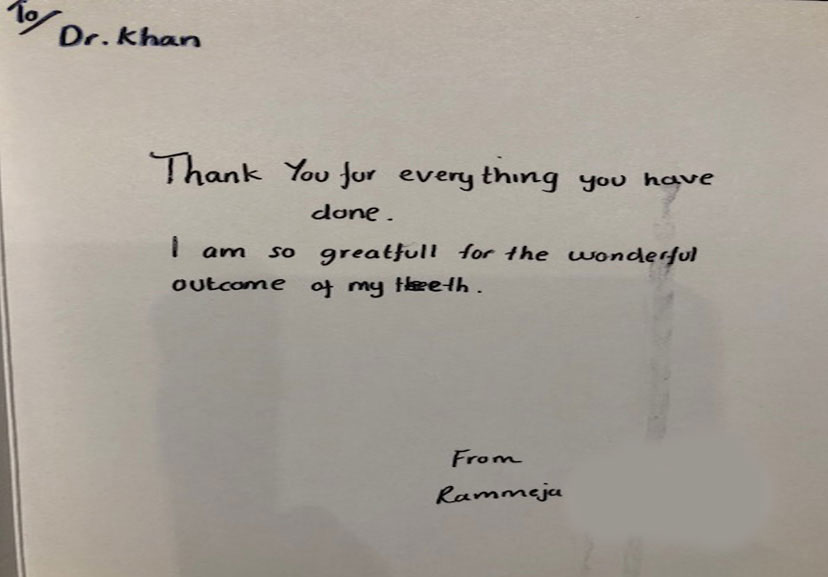 To/
Dr. Khan
Thank You for everything you have
done.
I am so greatfull for the wonderful
outcome of my teeth.
From
Rammeja